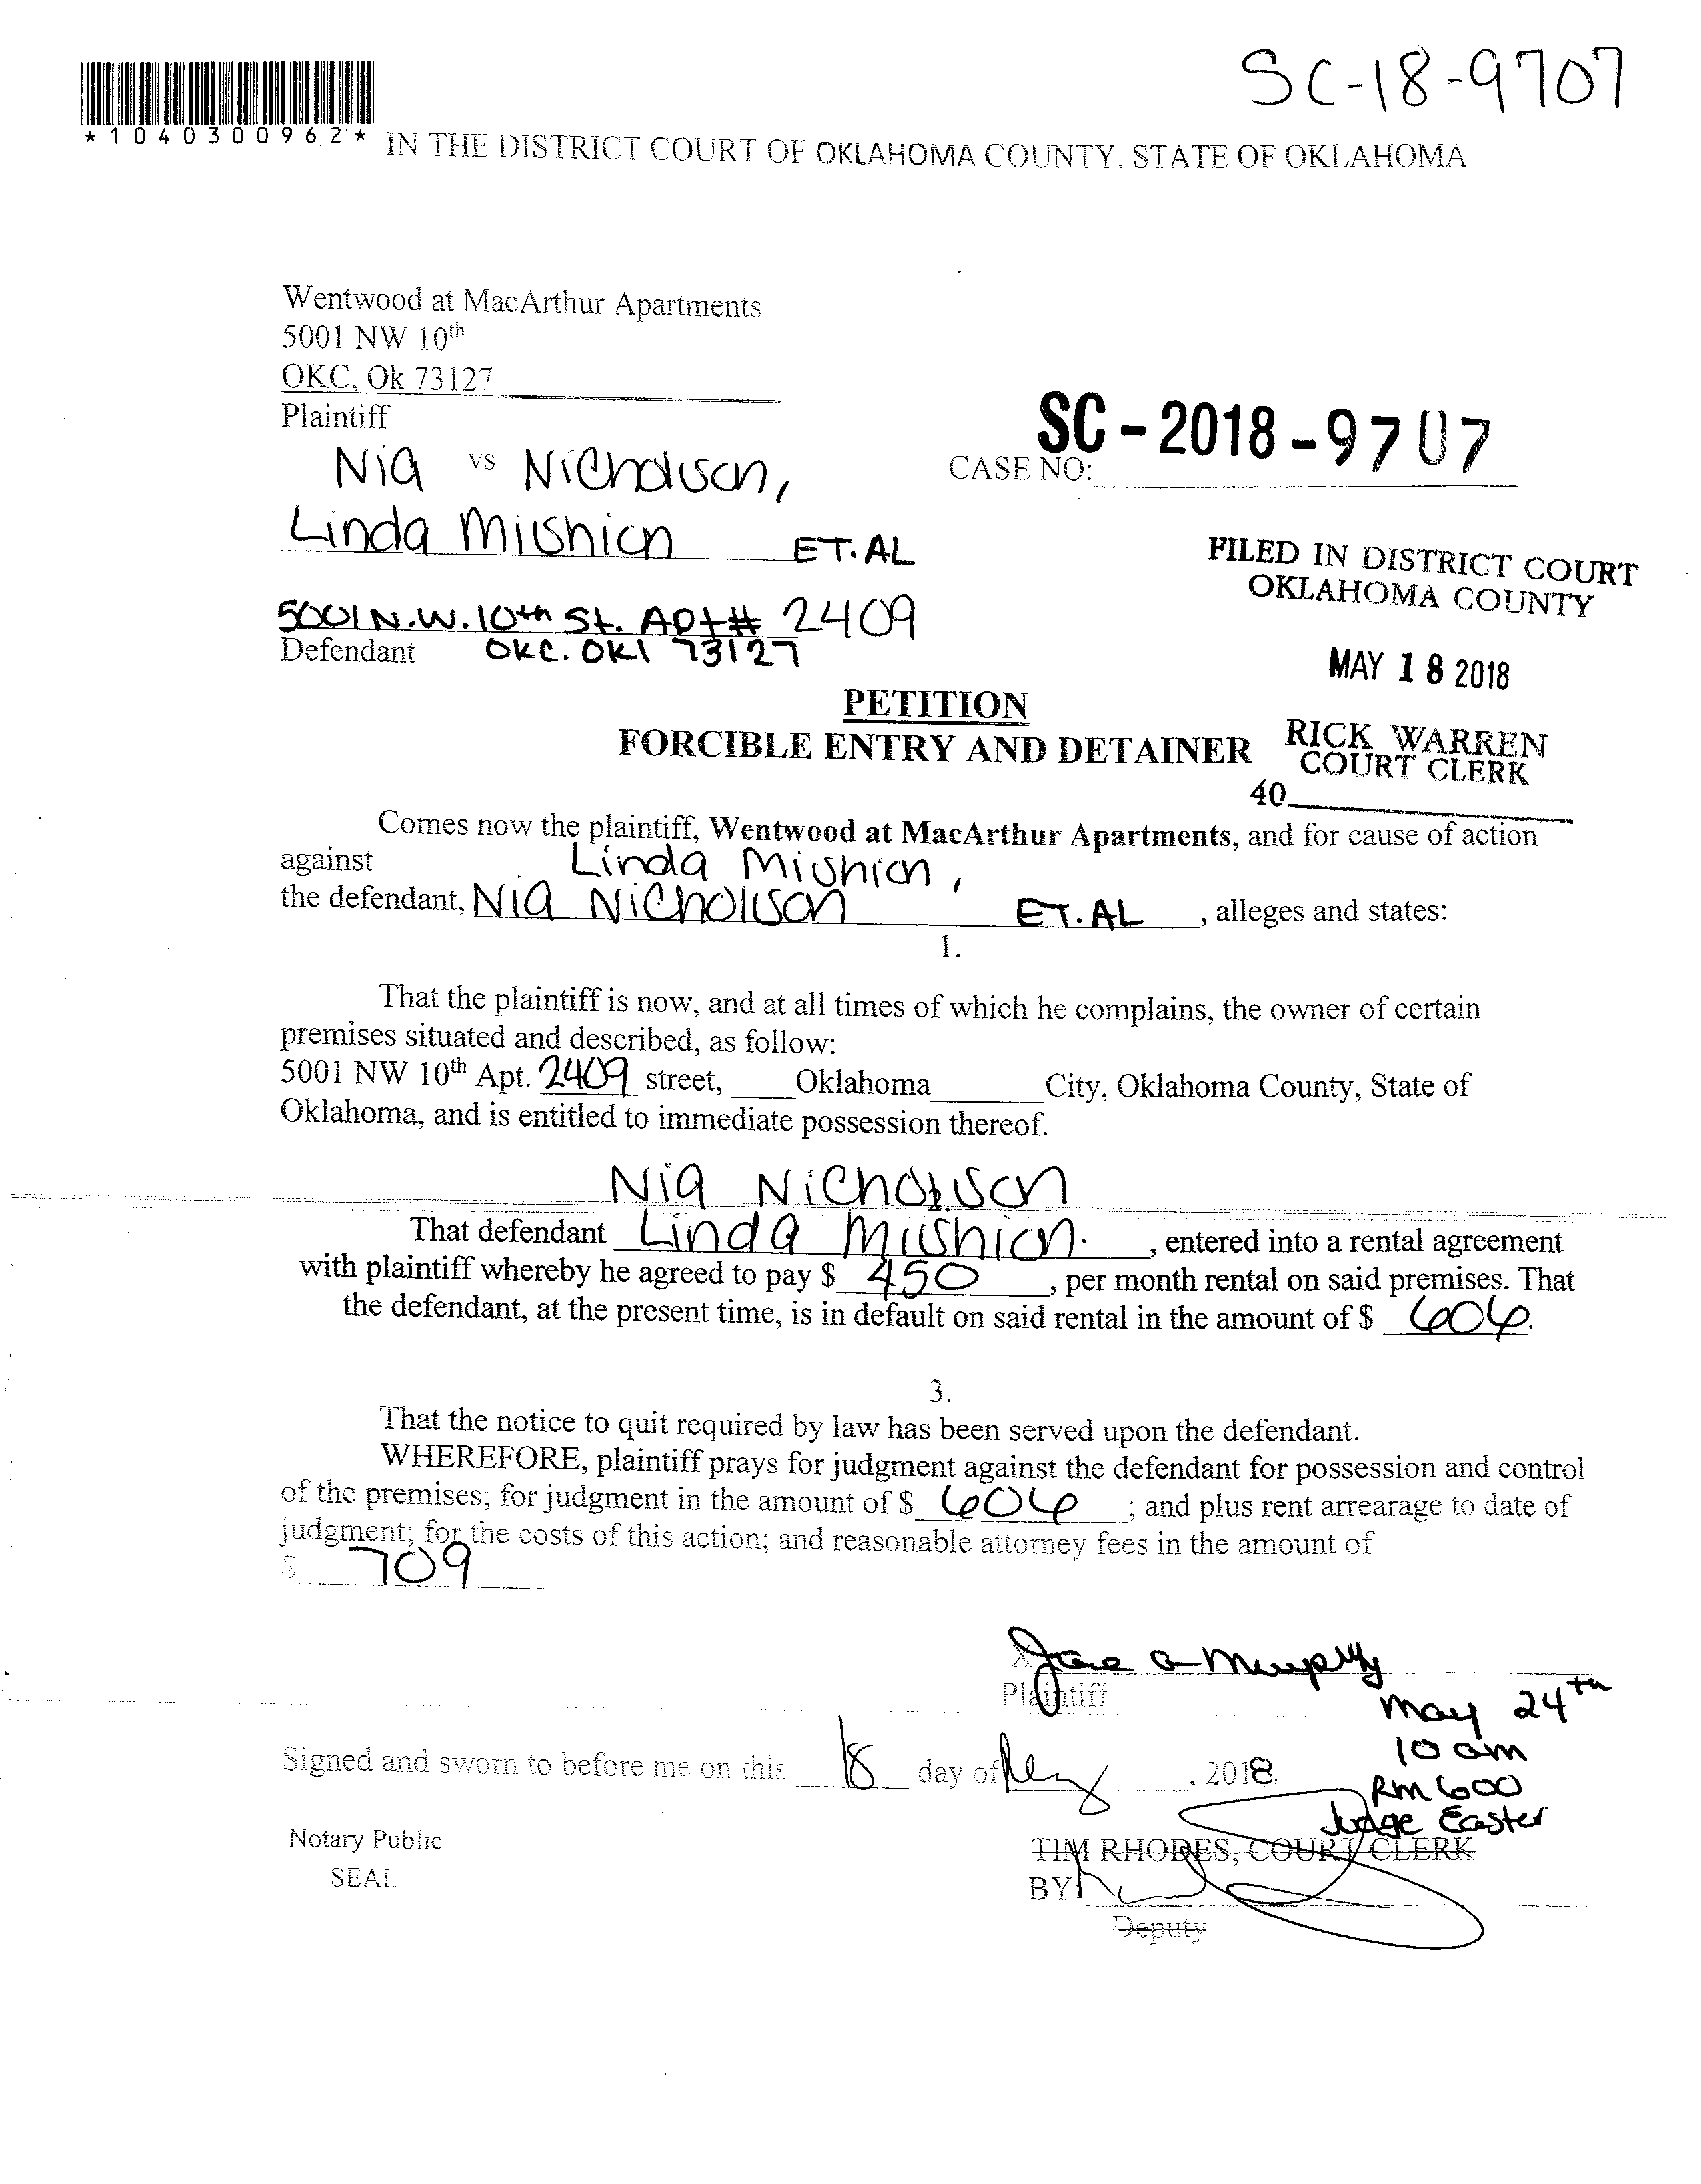 SC-18-9707
*1040300962*
IN THE DISTRICT COURT OF OKLAHOMA COUNTY, STATE OF OKLAHOMA
Wentwood at MacArthur Apartments
5001 NW 10th
OKC, Ok 73127
Plaintiff
SC-2018-9707
CASE NO:
Nia vs Nicholson,
Linda ET.AL
FILED IN DISTRICT COURT
OKLAHOMA COUNTY
5001 N.W. 10th St. Apt# 2409
Defendant OKC. OKl 73127
MAY 18 2018
PETITION
FORCIBLE ENTRY AND DETAINER
RICK WARREN
COURT CLERK
40
Comes now the plaintiff, Wentwood at MacArthur Apartments, and for cause of action
against Linda
the defendant, Nia Nicholson ET.AL, alleges and states:
1.
That the plaintiff is now, and at all times of which he complains, the owner of certain
premises situated and described, as follow:
5001 NW 10th Apt. 2409 street, Oklahoma City, Oklahoma County, State of
Oklahoma, and is entitled to immediate possession thereof.
Nia Nicholson
That defendant Linda , entered into a rental agreement
with plaintiff whereby he agreed to pay $ 450, per month rental on said premises. That
the defendant, at the present time, is in default on said rental in the amount of $ 606.
3.
That the notice to quit required by law has been served upon the defendant.
WHEREFORE, plaintiff prays for judgment against the defendant for possession and control
of the premises; for judgment in the amount of $ 606; and plus rent arrearage to date of
judgment; for the costs of this action; and reasonable attorney fees in the amount of
$ 709
X Murphy
Plaintiff
May 24th
10 am
Rm 600
Judge Easter
Signed and sworn to before me on this 18 day of May, 2018.
Notary Public
SEAL
TIM RHODES, COURT CLERK
BY
Deputy